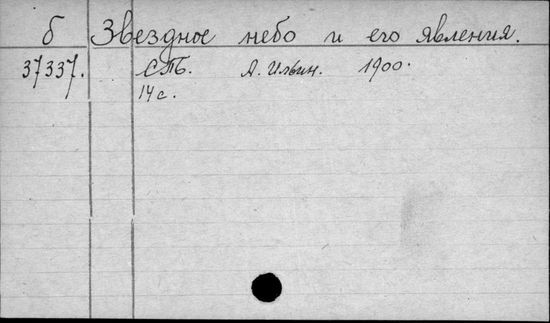 б Звездное небо и его явления.
37337. СПБ. А. Ильин. 1900.
14 с.